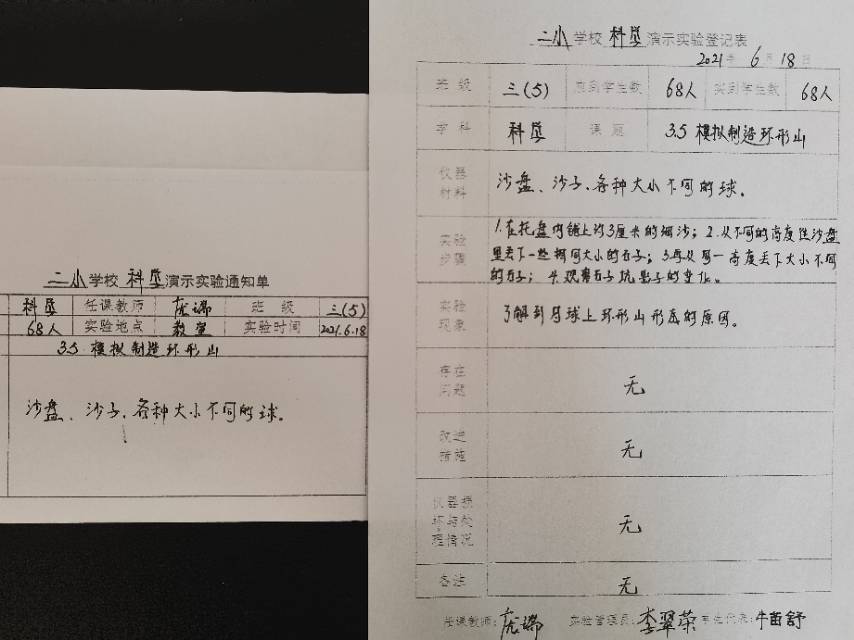 二小学校科学演示实验通知单
科学 任课教师 庞瑞 班级 三(5)
68人 实验地点 教室 实验时间 2021.6.18
3.5 模拟制造环形山
沙盘、沙子、各种大小不同的球。
二小学校科学演示实验登记表
2021年6月18日
班级 三(5) 应到学生数 68人 实到学生数 68人
学科 科学 课题 3.5 模拟制造环形山
仪器材料 沙盘、沙子、各种大小不同的球。
实验步骤 1.在托盘内铺上约3厘米的细沙；2.从不同的高度往沙盘
里丢下一些相同大小的石子；3.再从同一高度丢下大小不同
的石子；4.观察石子坑、影子的变化。
实验现象 了解到月球上环形山形成的原因。
存在问题 无
改进措施 无
仪器损坏与处理情况 无
备注 无
任课教师：庞瑞 实验管理员：李翠荣 学生代表：牛苗舒